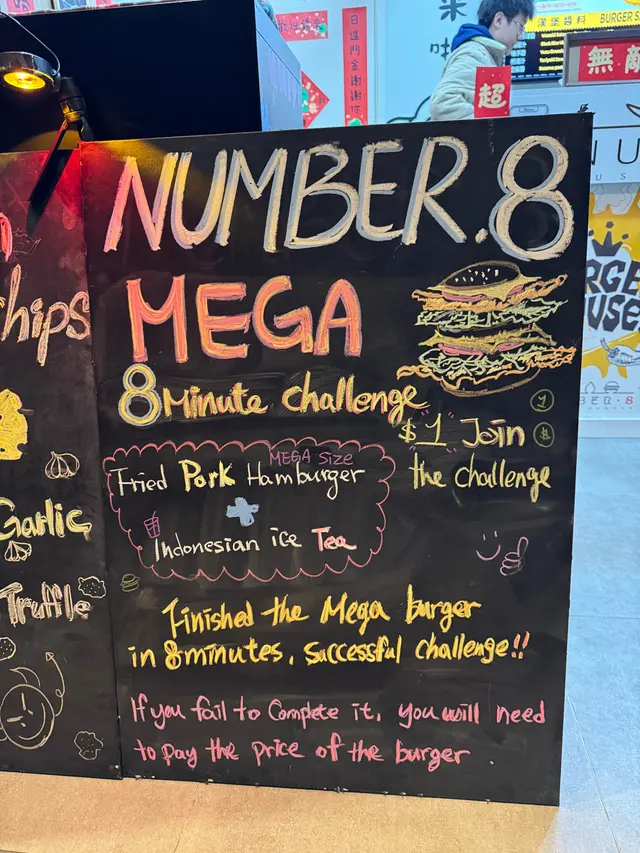 日進鬥金謝謝你
漢堡醬料
BURGER S
無敵
超
NUMBER.8
MEGA
8 Minute challenge
$1 Join
the challenge
MEGA Size
Fried Pork Hamburger
+
Indonesian ice Tea
Finished the Mega burger
in 8minutes, Successful challenge!!
If you fail to Complete it, you will need
to pay the price of the burger
hips
Garlic
Truffle
NU
US
RGE
USE
BER·8